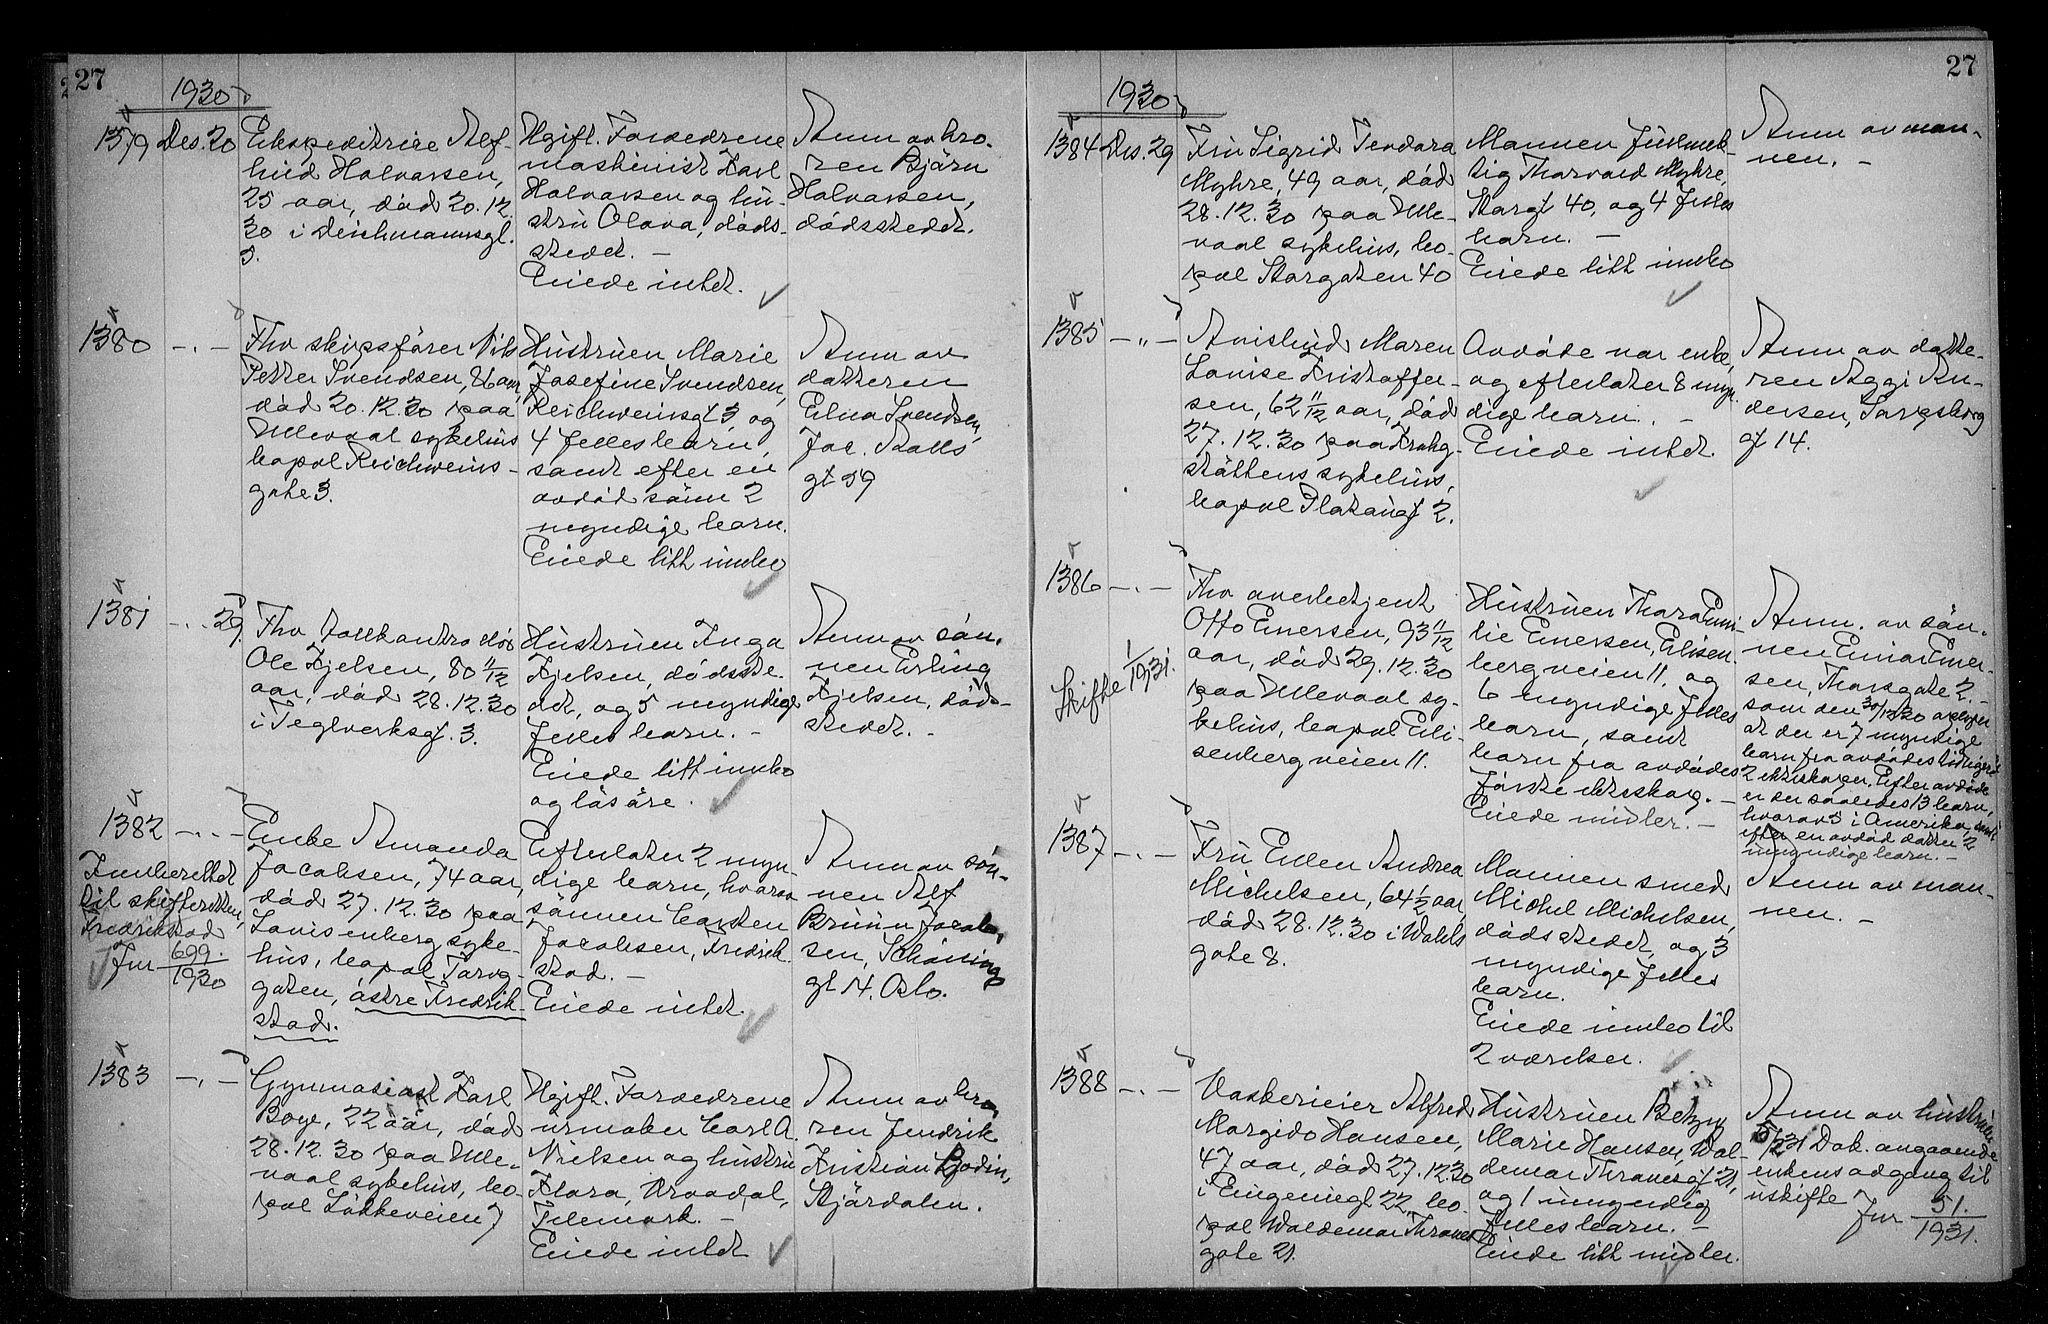 27
1930
1379 Des. 20
Ekspeditrice Alf-
hild Halvorsen,
25 aar, död 20.12.
30 i Deichmannsgt.
5.
Ugift. Forældrene
maskinist Karl
Halvorsen og hu-
stru Olava, döds-
stedet. —
Eiede intet.
Anm av bro-
ren Björn
Halvorsen,
dödsstedet.
1380 —„—
Fhv skipsförer Nils
Petter Svendsen, 86 aar,
död 20.12.30 paa
Ullevaal sykehus
bopæl Reichweins-
gate 3.
Hustruen Marie
Josefine Svendsen,
Reichweinsgt 3, og
4 felles barn,
samt efter en
avdöd sönn 2
myndige barn.
Eiede litt innbo
Anm av
datteren
Edna Svendsen,
Jac. Aalls
gt 59
1381 —„— 29.
Fhv
Ole Kjelsen, 80 1/12
aar, död 28.12.30
i Teglverksgt. 3.
Hustruen Inga
Kjelsen, dödsste-
det, og 5 myndige
felles barn. —
Eiede litt innbo
og lösöre.
Anm av sön-
nen Erling
Kjelsen, döds-
stedet. —
1382 —„—
Innberettet
til skifteretten,
Fredrikstad
Jnr 699.
1930
Enke Amanda
Jacobsen, 74 aar,
död 27.12.30 paa
Lovisenberg syke-
hus, bopæl Torvg-
gaten, östre Fredrik-
stad.
Efterlater 2 myn-
dige barn, hvorav
sönnen Carsten
Jacobsen, Fredrik-
stad. —
Eiede intet.
Anm av sön-
nen Alf
Bruun Jacob-
sen, Schönings
gt 14. Oslo.
1383 —„—
Gymnasiast Karl
Boye, 22 aar, död
28.12.30 paa Ulle-
vaal sykehus, bo-
pæl Lökkeveien 7
Ugift. Forældrene
urmaker Carl A.
Nielsen og hustru
Klara, Vraadal,
Telemark. —
Eiede intet
Anm av bro-
ren Fendrik
Kristian Bodin,
Stjördalen.
27
1930
1384 Des. 29
Fru Sigrid Teodora
Myhre, 49 aar, död
28.12.30 paa Ulle-
vaal sykehus, bo-
pæl Storgaten 40
Mannen fullmek-
tig Thorvald Myhre,
Storgt 40, og 4 felles
barn. —
Eiede litt innbo
Anm av man-
nen. —
1385 —„—
Avisbud Maren
Lovise Kristoffer-
sen, 62 11/12 aar, död
27.12.30 paa Krohg-
stöttens sykehus,
bopæl Platousgt 2.
Avdöde var enke,
og efterlater 8 myn-
dige barn. —
Eiede intet.
Anm av datte-
ren Aggi An-
dersen, Sarpsborg
gt 14.
1386 —„—
Skifte 1/1931.
Fhv overbetjent
Otto Einersen, 93 11/12
aar, död 29.12.30
paa Ullevaal sy-
kehus, bopæl Eili-
senbergveien 11.
Hustruen Thora Emi-
lie Einersen, Eilisen-
bergveien 11, og
6 myndige felles
barn, samt
barn fra avdödes
förste ekteskap. —
Eiede midler. —
Anm. av sön-
nen Einar Einer-
sen, Thorsgate 2. —
som den 30/12 30 opgir
at der er 7 myndige
barn fra avdödes tidligere
2 ekteskaper. Efter avdöde
er der saaledes 13 barn,
hvorav 5 i Amerika, samt
efter en avdöd datter 2
umyndige barn. —
1387 —„—
Fru Ellen Andrea
Michelsen, 64 1/2 aar,
död 28.12.30 i Wahls
gate 8.
Mannen smed
Michel Michelsen,
dödsstedet, og 3
myndige felles
barn.
Eiede innbo til
2 værelser.
Anm av man-
nen. —
1388 —„—
Vaskerieier Alfred
Margido Hansen,
47 aar, död 27.12.30
i Eugeniegt 22, bo-
pæl Waldemar Thranes
gate 21.
Hustruen Betzy
Marie Hansen, Wal-
demar Thranesgt 21,
og 1 umyndig
felles barn. —
Eiede litt midler.
Anm av hustruen
5/1 31 Dok. angaaende
enkens adgang til
uskifte
Jnr 51.
1931.